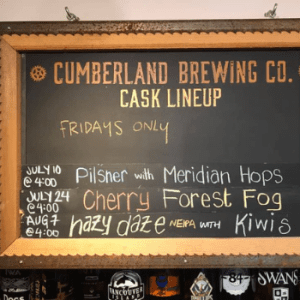 CUMBERLAND BREWING CO.
CASK LINEUP
FRIDAYS ONLY
JULY 10
@ 4:00
Pilsner with Meridian Hops
JULY 24
@ 4:00
Cherry Forest Fog
AUG 7
@ 4:00
hazy daze NEIPA WITH Kiwis
VANCOUVER
ISLAND
84
SWANS
Dogs